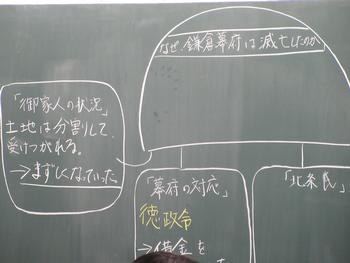 なぜ鎌倉幕府は滅亡したのか
「御家人の状況」
土地は分割して、
受けつがれる。
→まずしくなっていった
「幕府の対応」
徳政令
→借金を
「北条氏」